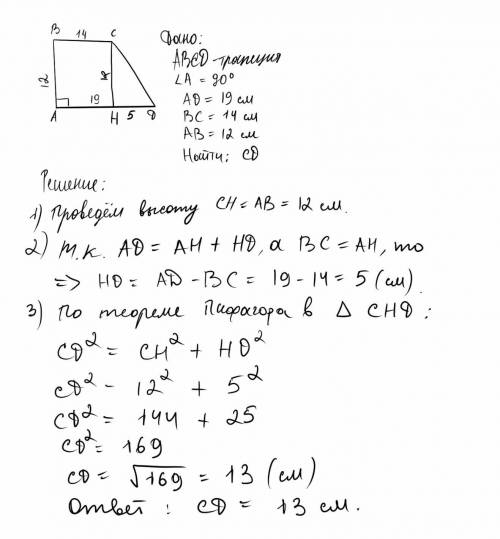 B 14 C
12
19
A H 5 D
Дано:
ABCD - трапеция
∠A = 90°
AD = 19 см
BC = 14 см
AB = 12 см
Найти: CD
Решение:
1) Проведём высоту CH = AB = 12 см.
2) т.к. AD = AH + HD, а BC = AH, то
=> HD = AD - BC = 19 - 14 = 5 (см).
3) По теореме Пифагора в Δ CHD:
CD² = CH² + HD²
CD² - 12² + 5²
CD² = 144 + 25
CD² = 169
CD = √169 = 13 (см)
Ответ: CD = 13 см.